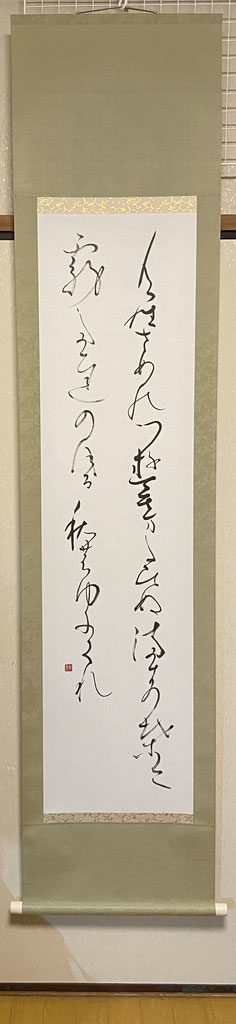 むらさめのつゆもまたひぬまきのはに
霧たちのほる秋のゆふくれ